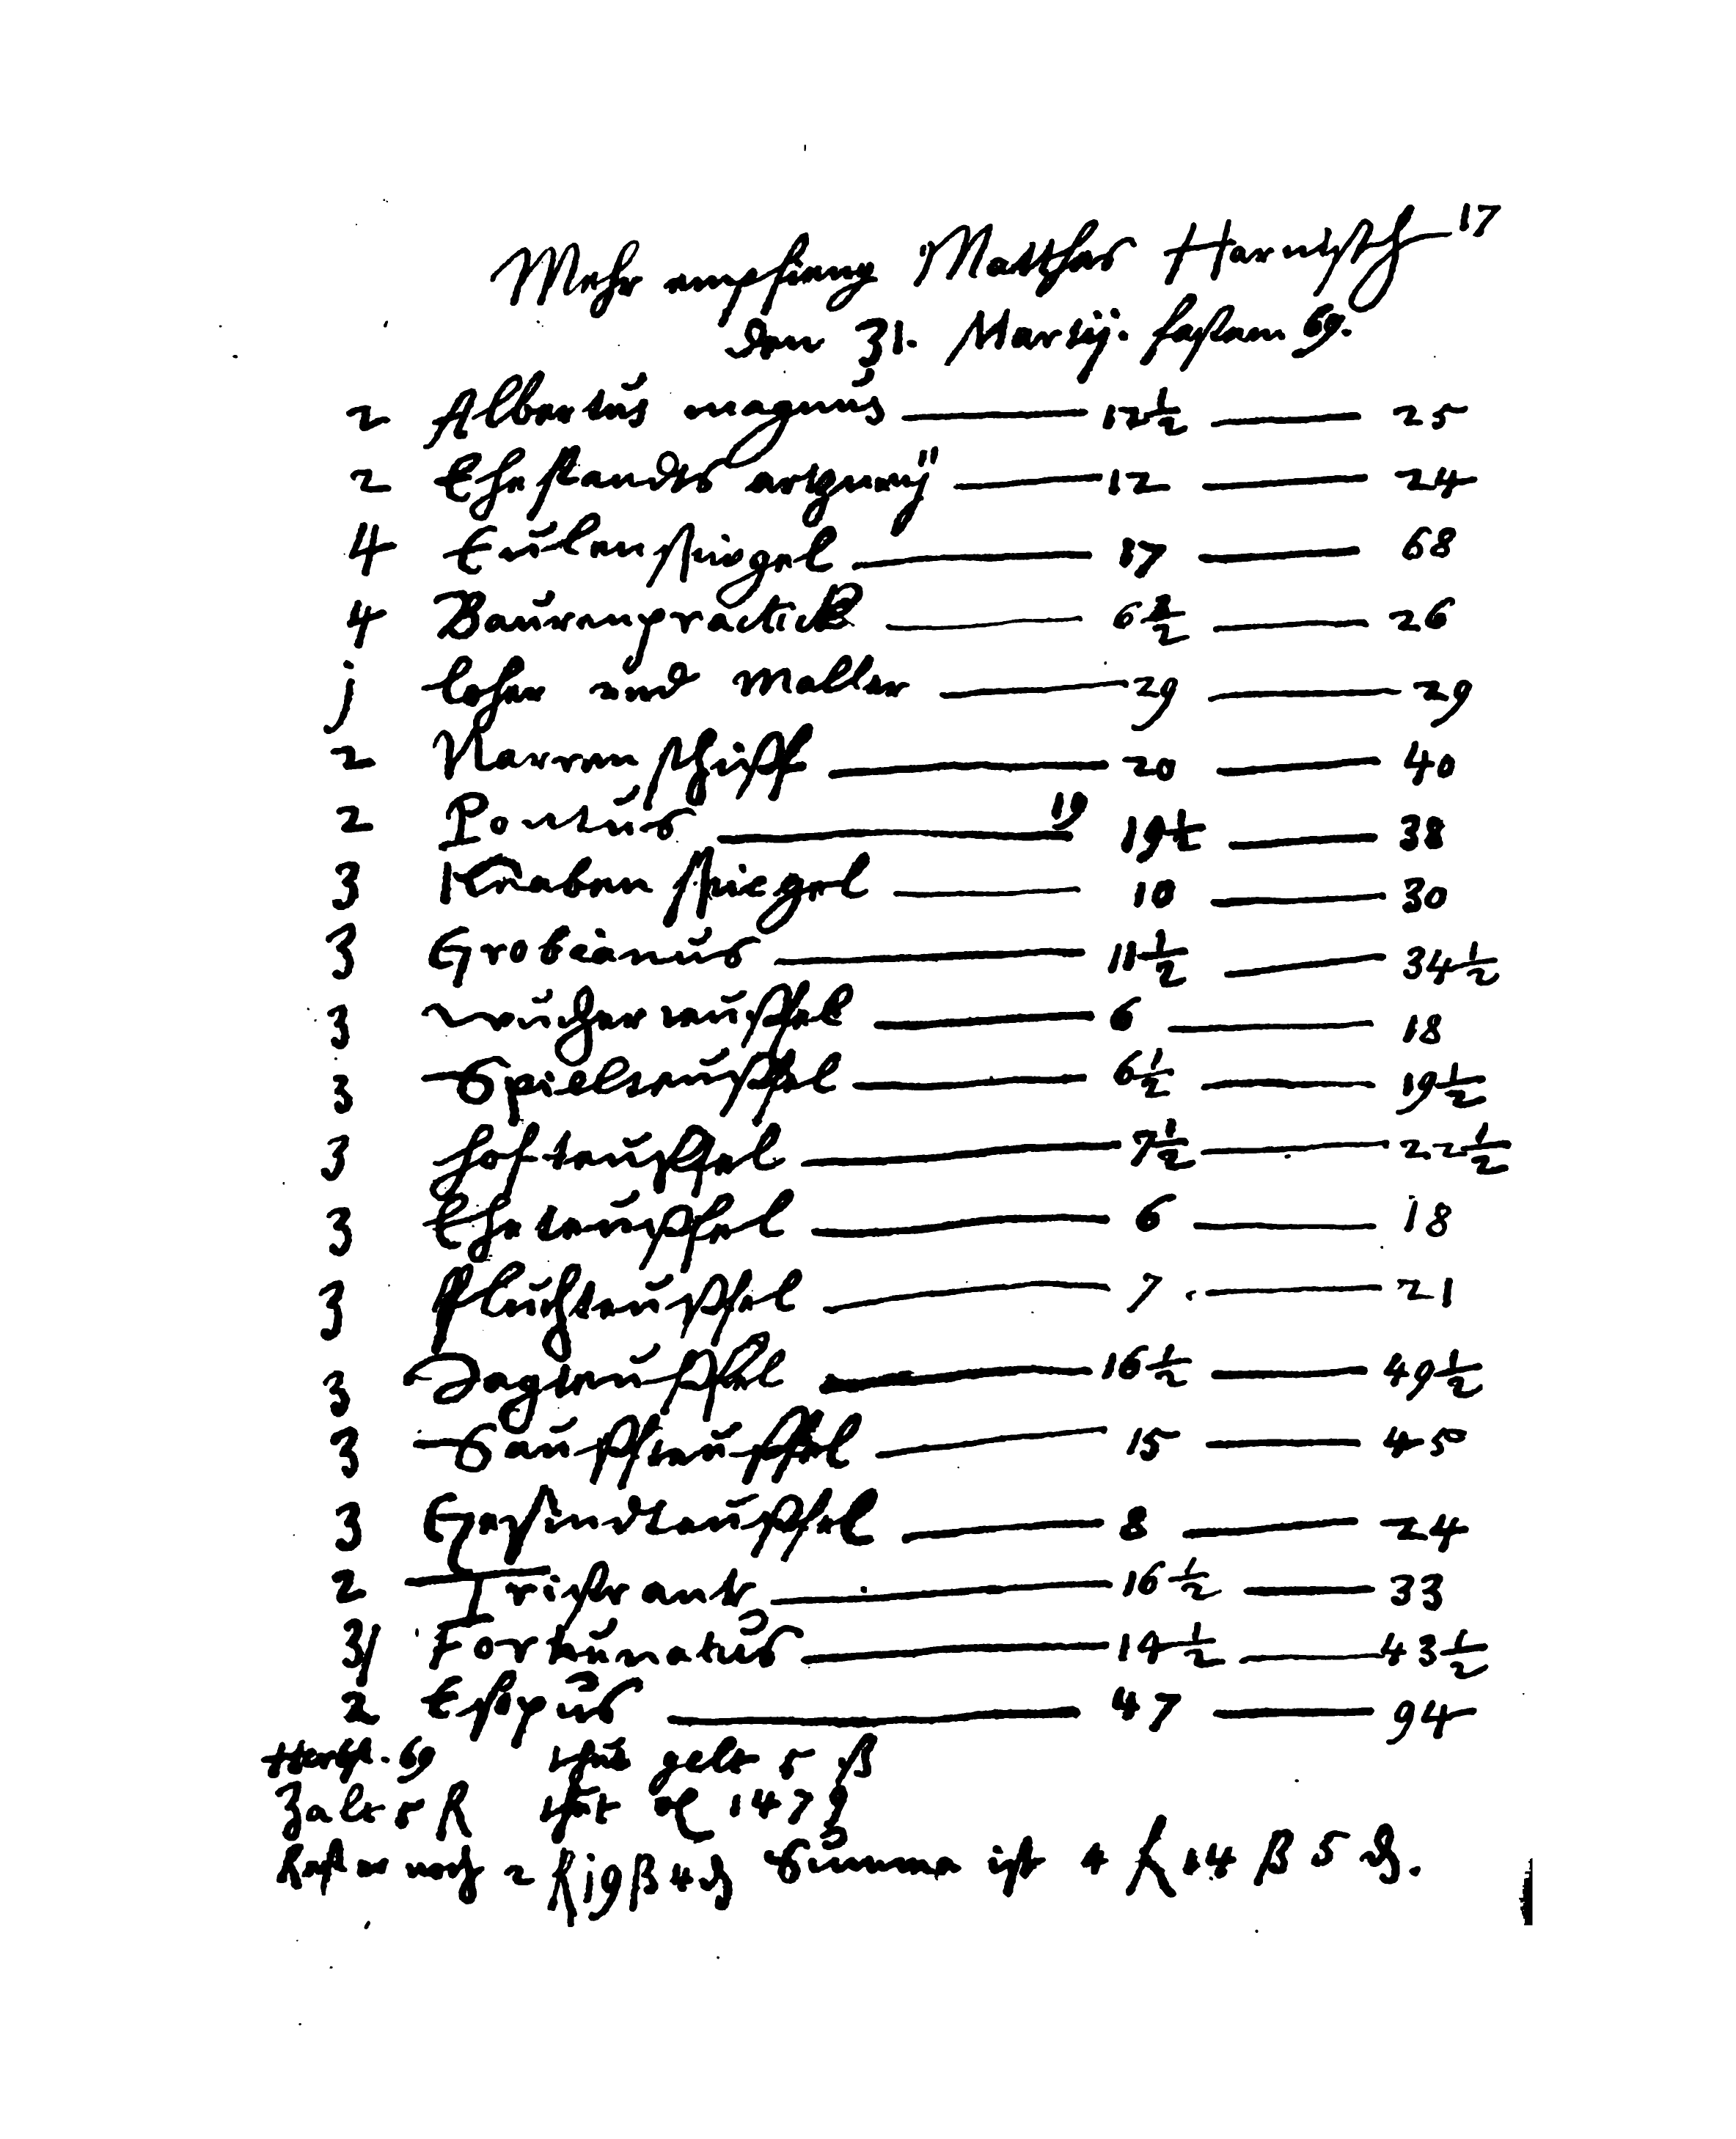 17
Mehr empfieng Matthes Harnisch
den 31. Martij. fasten 69.
2 Albertus magnus — 12½ — 25
2 Ehestandts artzney — 12 — 24
4 Eulenspiegel — 17 — 68
4 Baurenpractick — 6½ — 26
j loher und Maller — 29 — 29
2 Narrenschiff — 20 — 40
2 Pontus — 19 19½ — 38
3 Knabenspiegel — 10 — 30
3 Grobianus — 11½ — 34½
3 wucherteuffel — 6 — 18
3 Spielteuffel — 6½ — 19½
3 hofteuffel — 7½ — 22½
3 Eheteuffel — 6 — 18
3 fluchteuffel — 7 — 21
3 Jagteuffel — 16½ — 49½
3 Sauffteuffel — 15 — 45
3 Gesindteuffel — 8 — 24
2 Tristrant — 16½ — 33
3 Fortunatus — 14½ — 43½
2 Esopus — 47 — 94
Herbst. 69 thut gelt 5 ß
Zalt 5 fl thut 147
Rest er noch 2 fl 19 ß 4 d Summa ist 4 fl 14 ß 5 d.